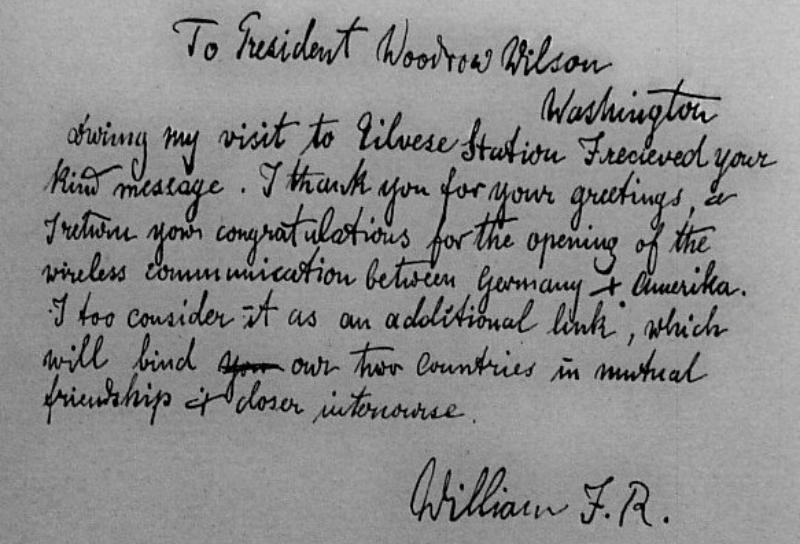 To President Woodrow Wilson
Washington
Owing my visit to Eilvese Station I recieved your
kind message. I thank you for your greetings, &
I return your congratulations for the opening of the
wireless communication between Germany & Amerika.
I too consider it as an additional link, which
will bind you our two countries in mutual
friendship & closer intercourse.
William I.R.